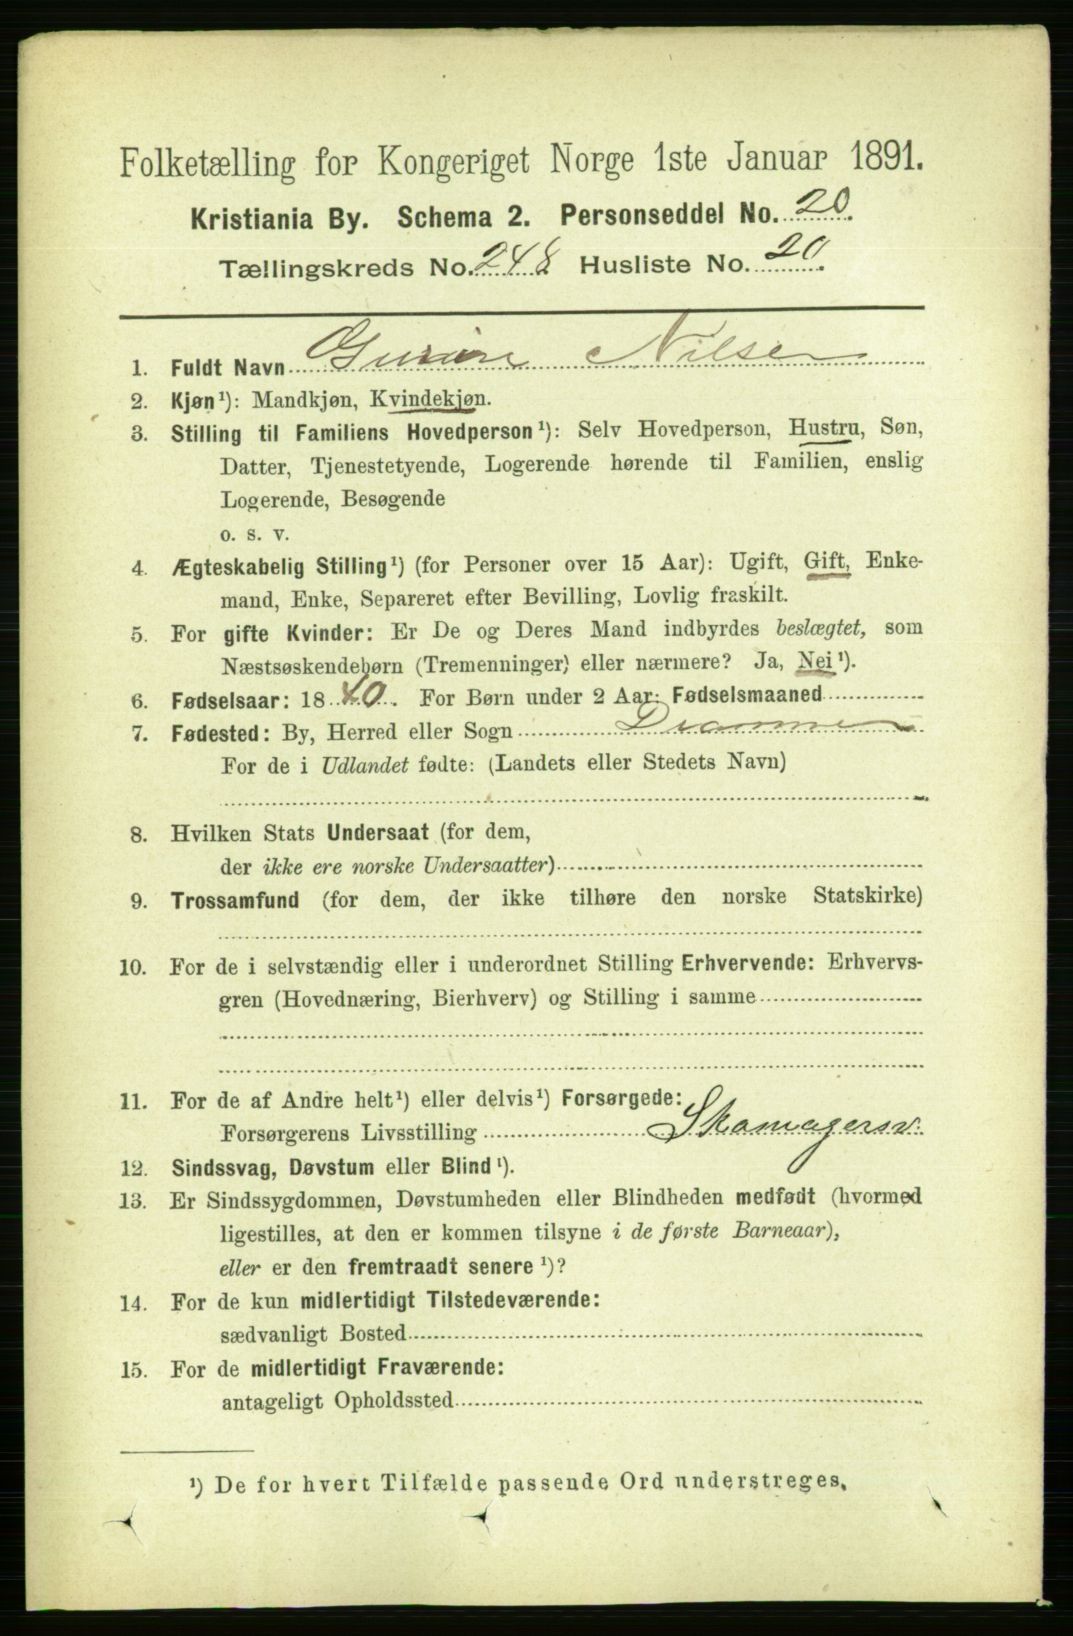 Folketælling for Kongeriget Norge 1ste Januar 1891.
Kristiania By. Schema 2. Personseddel No. 20.
Tællingskreds No. 248 Husliste No. 20.
1. Fuldt Navn Nilsen
2. Kjøn¹): Mandkjøn, Kvindekjøn.
3. Stilling til Familiens Hovedperson¹): Selv Hovedperson, Hustru, Søn,
Datter, Tjenestetyende, Logerende hørende til Familien, enslig
Logerende, Besøgende
o. s. v.
4. Ægteskabelig Stilling¹) (for Personer over 15 Aar): Ugift, Gift, Enke-
mand, Enke, Separeret efter Bevilling, Lovlig fraskilt.
5. For gifte Kvinder: Er De og Deres Mand indbyrdes beslægtet, som
Næstsøskendebørn (Tremenninger) eller nærmere? Ja, Nei¹).
6. Fødselsaar: 1840. For Børn under 2 Aar: Fødselsmaaned
7. Fødested: By, Herred eller Sogn Drammen
For de i Udlandet fødte: (Landets eller Stedets Navn)
8. Hvilken Stats Undersaat (for dem,
der ikke ere norske Undersaatter)
9. Trossamfund (for dem, der ikke tilhøre den norske Statskirke)
10. For de i selvstændig eller i underordnet Stilling Erhvervende: Erhvervs-
gren (Hovednæring, Bierhverv) og Stilling i samme
11. For de af Andre helt¹) eller delvis¹) Forsørgede:
Forsørgerens Livsstilling Skomagersv.
12. Sindssvag, Døvstum eller Blind¹).
13. Er Sindssygdommen, Døvstumheden eller Blindheden medfødt (hvormed
ligestilles, at den er kommen tilsyne i de første Barneaar),
eller er den fremtraadt senere¹)?
14. For de kun midlertidigt Tilstedeværende:
sædvanligt Bosted
15. For de midlertidigt Fraværende:
antageligt Opholdssted
¹) De for hvert Tilfælde passende Ord understreges.